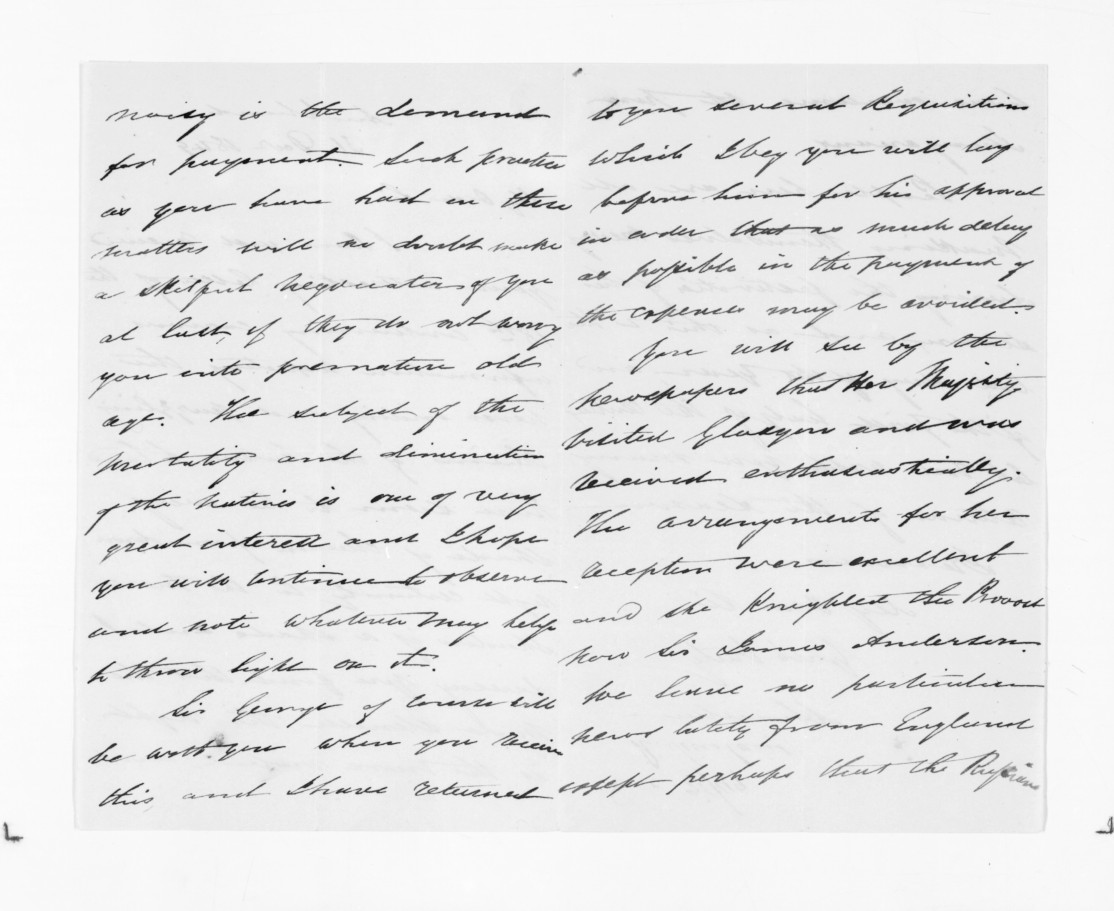 noisy is the demand
for payment. Such practice
as you have had in these
matters will no doubt make
a skilful negociator of you
at last, if they do not worry
you into premature old
age. The subject of the
mortality and diminution
of the natives is one of very
great interest and I hope
you will continue to observe
and note whatever may help
to throw light on it.
Sir George of course will
be with you when you receive
this, and I have returned
to you several Requisitions
which I beg you will lay
before him for his approval
in order that as much delay
as possible in the payment of
the expenses may be avoided.
You will see by the
newspapers that Her Majesty
visited Glasgow and was
received enthusiastically.
The arrangements for her
reception were excellent
and she Knighted the Provost
now Sir James Anderson.
We have no particular
news lately from England
except perhaps that the Russians